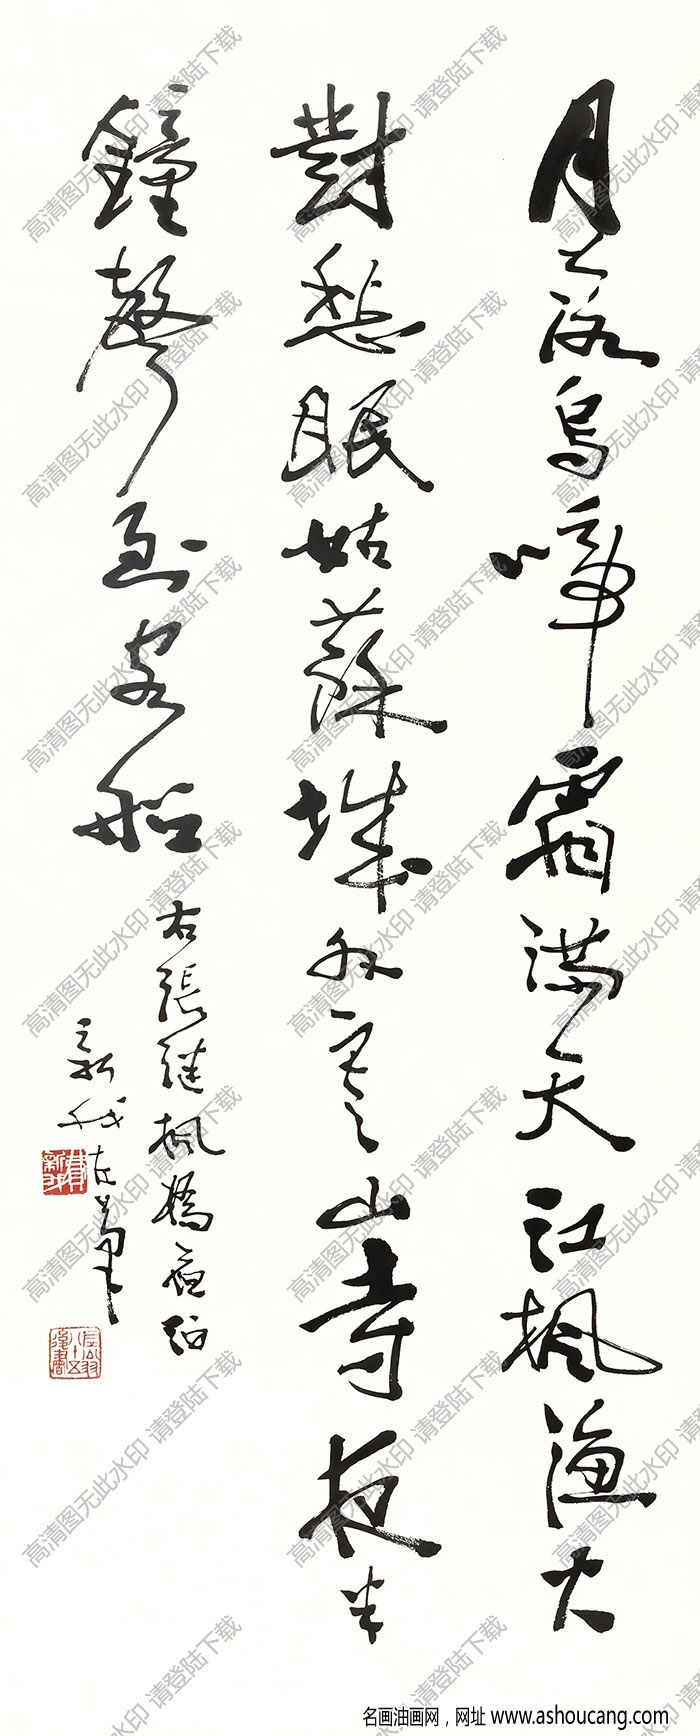 月落烏啼霜满天江楓渔火
對愁眠姑蘇城外寒山寺夜半
鐘聲到客船
右張继楓橋夜泊
新我左筆
費新我
高清图无此水印 请登陆下载
名画油画网，网址 www.ashoucang.com